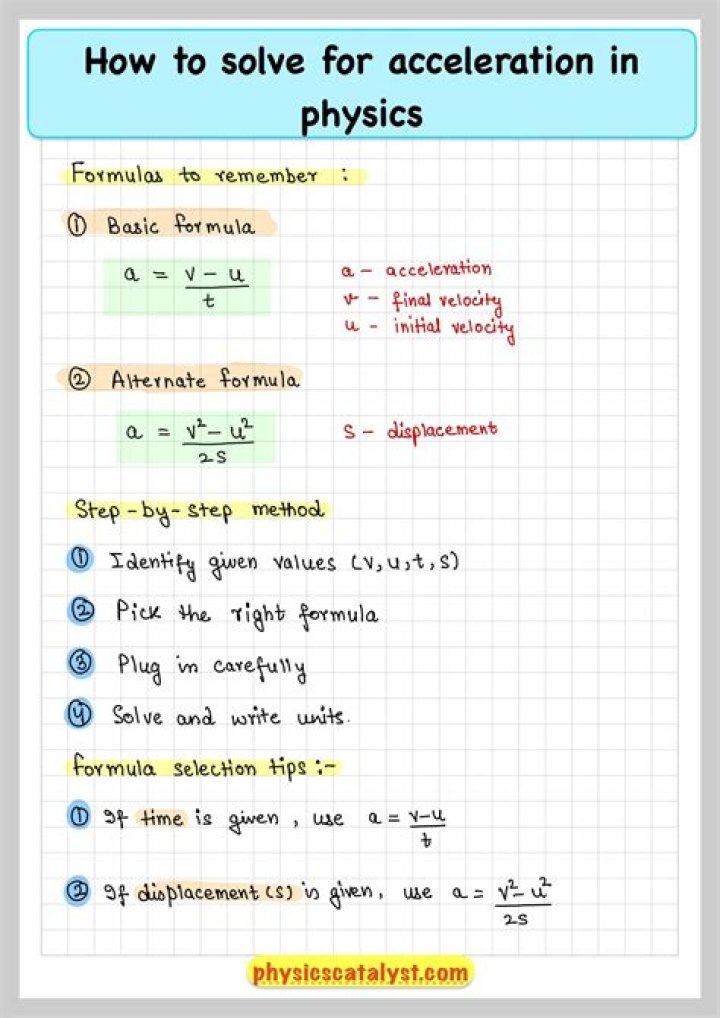 How to solve for acceleration in
physics
Formulas to remember :
① Basic formula
a = (v - u)/t
a - acceleration
v - final velocity
u - initial velocity
② Alternate formula
a = (v² - u²)/2s
S - displacement
Step-by-step method
① Identify given values (v,u,t,s)
② Pick the right formula
③ Plug in carefully
④ Solve and write units.
formula selection tips :-
① If time is given, use a = (v-u)/t
② If displacement (s) is given, use a = (v²-u²)/2s
physicscatalyst.com